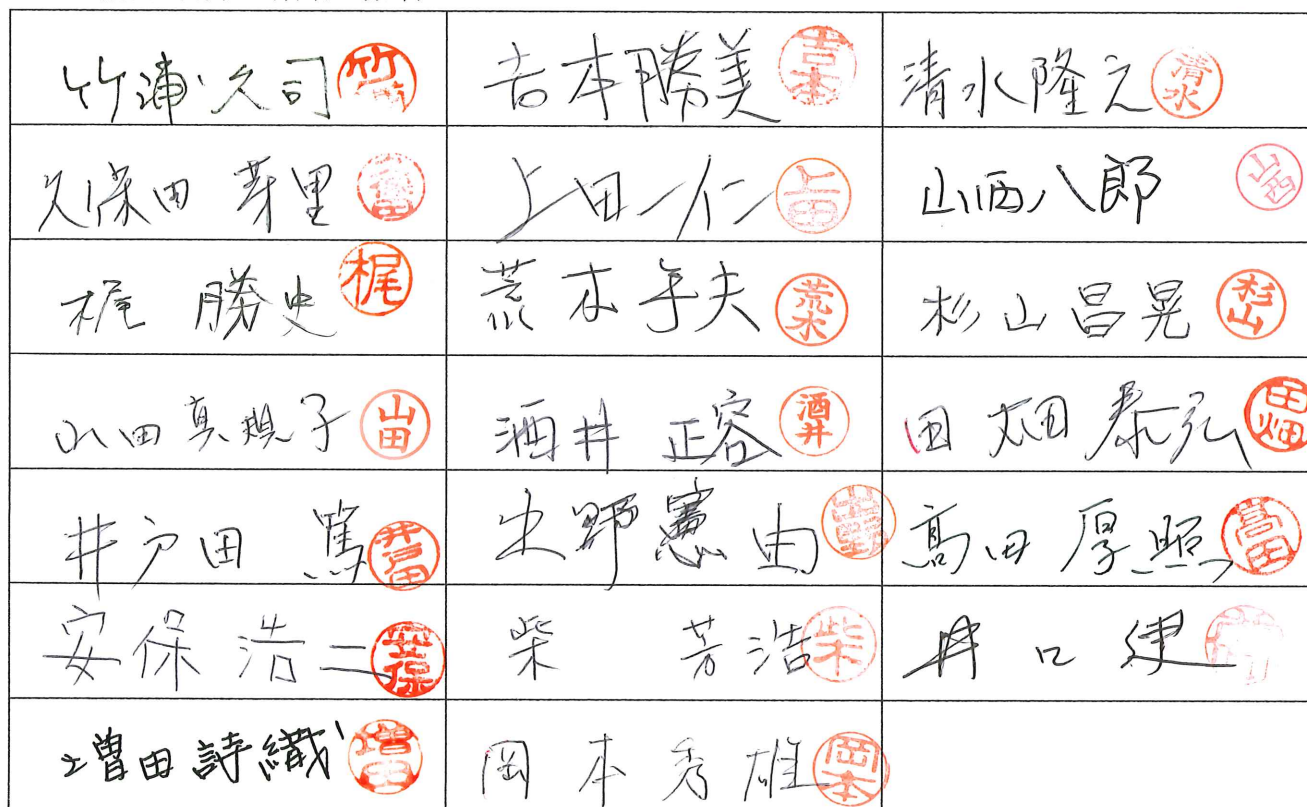 竹浦久司 竹浦 吉本勝美 吉本 清水隆之 清水
久保田 芽里 久保田 上田一仁 上田 山西八郎 山西
梶 勝史 梶 荒木年夫 荒木 杉山昌晃 杉山
山田真規子 山田 酒井 正容 酒井 田畑泰弘 田畑
井戸田 篤 井戸田 出野憲由 出野 高田厚照 高田
安保浩二 安保 柴 芳浩 柴 井口健
増田詩織 増田 岡本秀雄 岡本